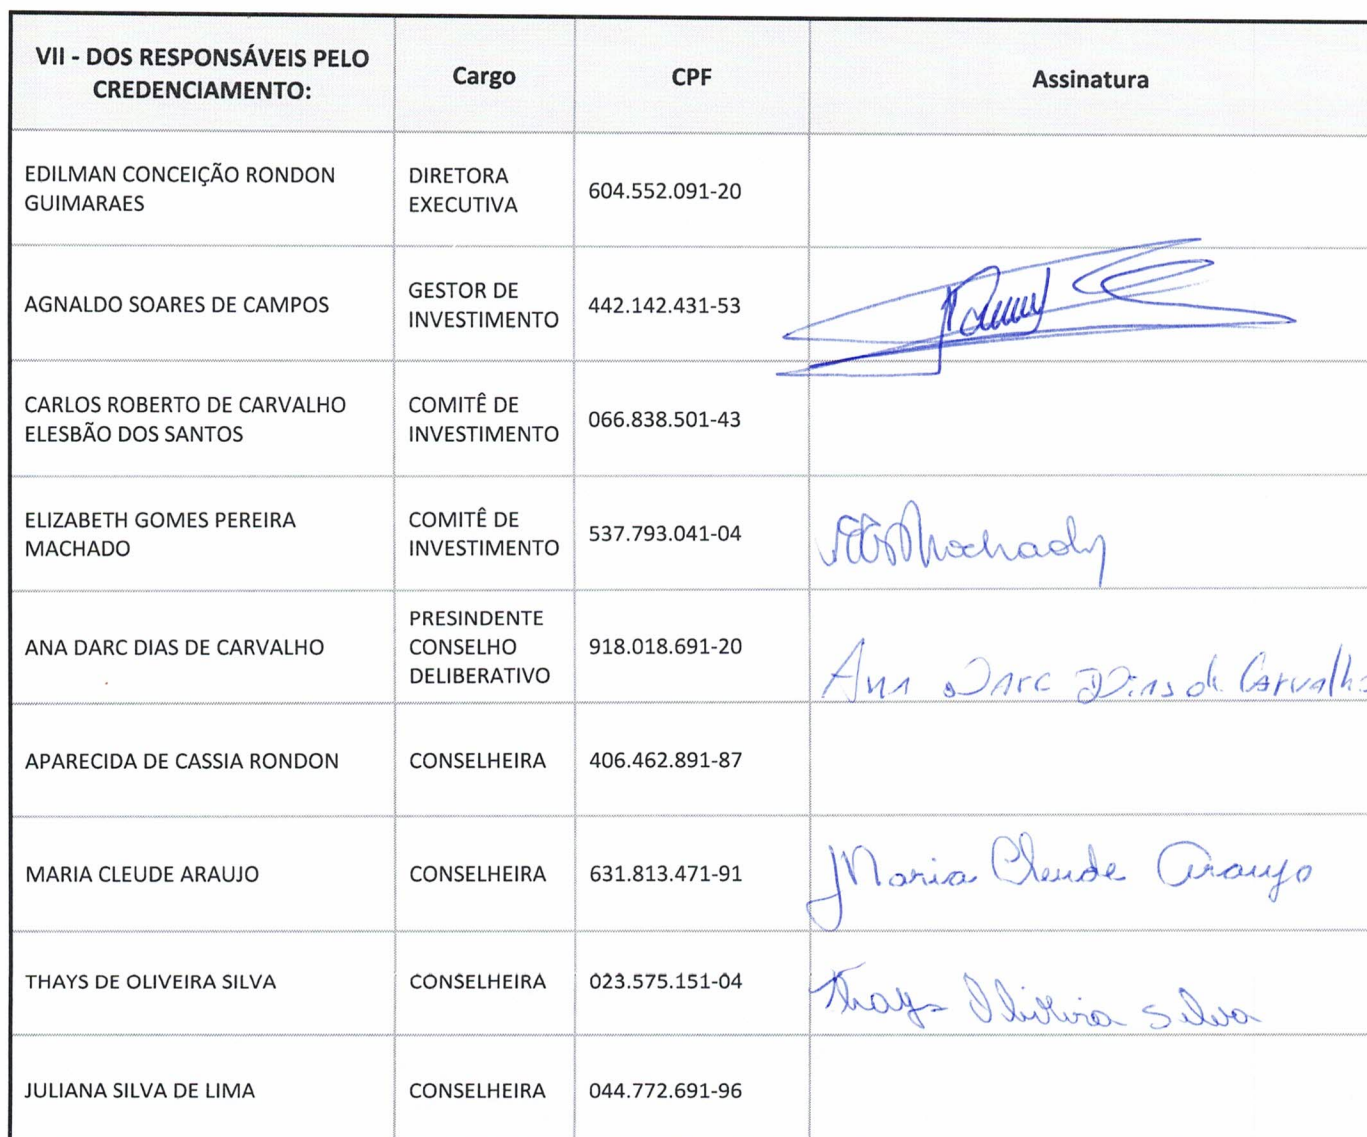 VII - DOS RESPONSÁVEIS PELO
CREDENCIAMENTO:
Cargo
CPF
Assinatura
EDILMAN CONCEIÇÃO RONDON
GUIMARAES
DIRETORA
EXECUTIVA
604.552.091-20
AGNALDO SOARES DE CAMPOS
GESTOR DE
INVESTIMENTO
442.142.431-53
CARLOS ROBERTO DE CARVALHO
ELESBÃO DOS SANTOS
COMITÊ DE
INVESTIMENTO
066.838.501-43
ELIZABETH GOMES PEREIRA
MACHADO
COMITÊ DE
INVESTIMENTO
537.793.041-04
Machado
ANA DARC DIAS DE CARVALHO
PRESINDENTE
CONSELHO
DELIBERATIVO
918.018.691-20
Ana Darc Dias de Carvalho
APARECIDA DE CASSIA RONDON
CONSELHEIRA
406.462.891-87
MARIA CLEUDE ARAUJO
CONSELHEIRA
631.813.471-91
Maria Cleude Araujo
THAYS DE OLIVEIRA SILVA
CONSELHEIRA
023.575.151-04
Thays Oliveira Silva
JULIANA SILVA DE LIMA
CONSELHEIRA
044.772.691-96